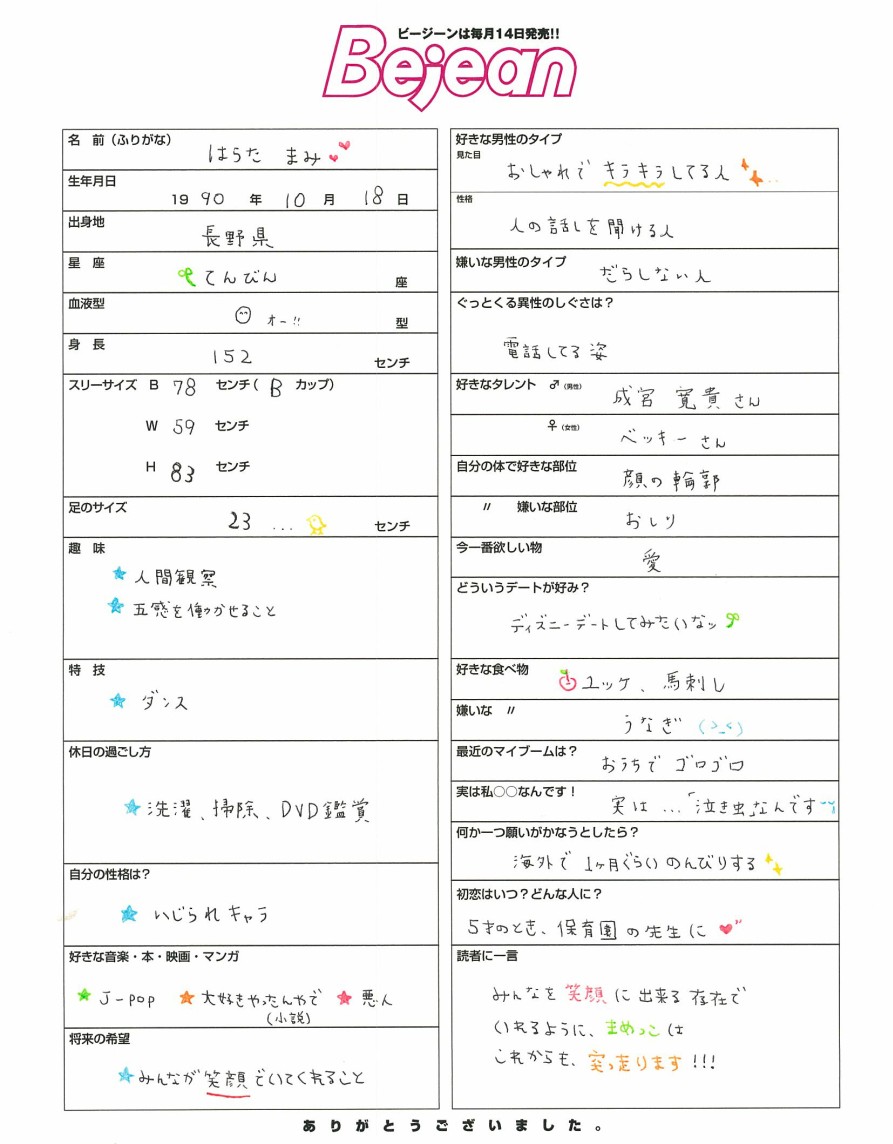 ビージーンは毎月14日発売!!
Bejean
名 前（ふりがな）
はらた まみ
生年月日
19 90 年 10 月 18 日
出身地
長野県
星 座
てんびん 座
血液型
オー!! 型
身 長
152 センチ
スリーサイズ B 78 センチ( B カップ)
W 59 センチ
H 83 センチ
足のサイズ
23 ... センチ
趣 味
人間観察
五感を働かせること
特 技
ダンス
休日の過ごし方
洗濯、掃除、DVD鑑賞
自分の性格は？
いじられキャラ
好きな音楽・本・映画・マンガ
J-POP 大好きやったんやで 悪人
(小説)
将来の希望
みんなが笑顔でいてくれること
好きな男性のタイプ
見た目
おしゃれで キラキラしてる人
性格
人の話しを聞ける人
嫌いな男性のタイプ
だらしない人
ぐっとくる異性のしぐさは？
電話してる姿
好きなタレント ♂（男性） 成宮 寛貴さん
♀（女性） ベッキーさん
自分の体で好きな部位
顔の輪郭
〃 嫌いな部位
おしり
今一番欲しい物
愛
どういうデートが好み？
ディズニーデートしてみたいなッ
好きな食べ物
ユッケ、馬刺し
嫌いな 〃
うなぎ (>_<)
最近のマイブームは？
おうちで ゴロゴロ
実は私○○なんです！
実は…「泣き虫」なんです
何か一つ願いがかなうとしたら？
海外で 1ヶ月ぐらい のんびりする
初恋はいつ？どんな人に？
5才のとき、保育園の先生に
読者に一言
みんなを 笑顔 に 出来る 存在で
いれるように、まめっこ は
これからも、突っ走ります!!!
ありがとうございました。